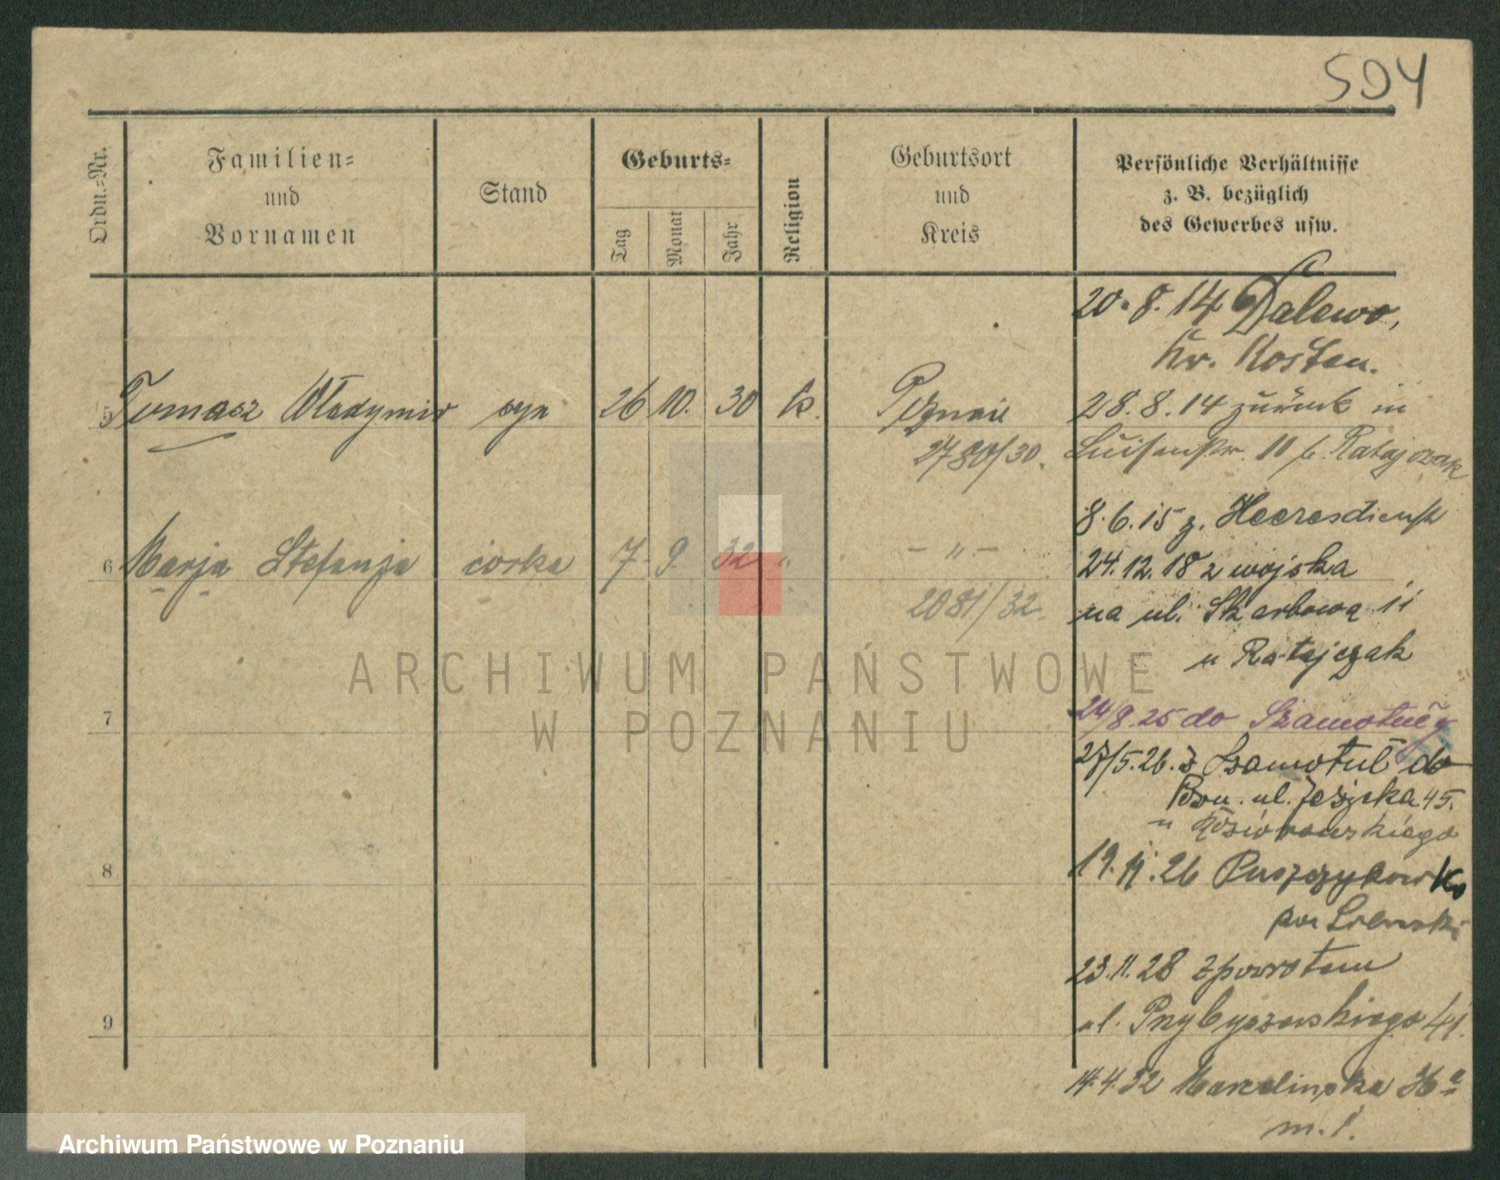 504
Ordn.=Nr.
Familien=
und
Vornamen
Stand
Geburts=
Tag
Monat
Jahr
Religion
Geburtsort
und
Kreis
Persönliche Verhältnisse
z. B. bezüglich
des Gewerbes usw.
20.8.14 Dalewo,
Kr. Kosten.
5 Tomasz Władymir syn 26 10. 30 k. Poznań
2780/30.
28.8.14 zurück in
Luisenstr. 11 b. Ratajczak
8.6.15 z. Heeresdienst
6 Marja Stefanja córka 7 9. 32 " – " –
2081/32.
24.12.18 z wojska
na ul. Skarbową 11
u Ratajczak
ARCHIWUM PAŃSTWOWE
W POZNANIU
7
24/8.25 do Szamotuł
27/5.26. z Szamotuł do
Pozn. ul. 45.
8
19.11.26 Puszczykowko
pow
23.11.28 zpowrotem
9
ul. Przybyszewskiego 41.
14.4.32 Marcelinska 36a
m. 1.
Archiwum Państwowe w Poznaniu